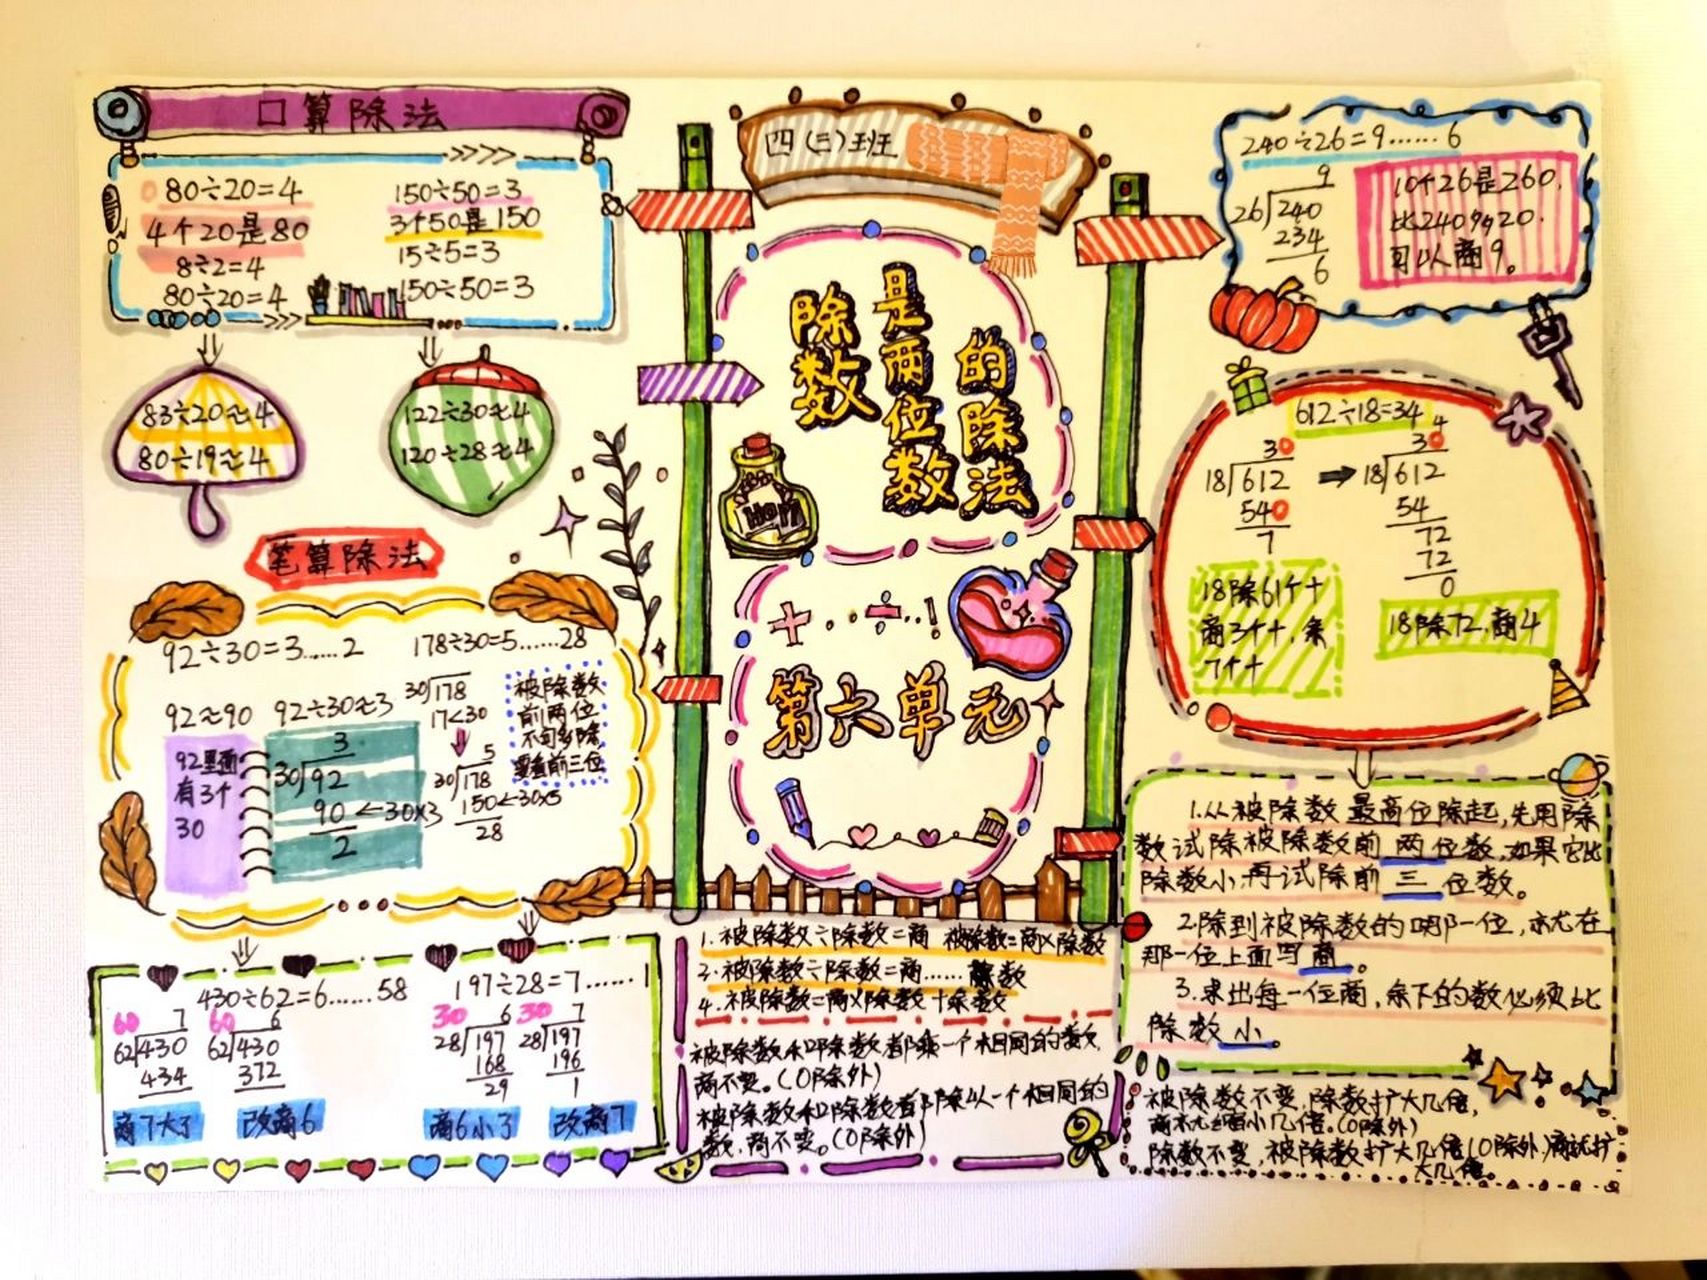 口算除法
80÷20=4
4个20是80
8÷2=4
80÷20=4
150÷50=3
3个50是150
15÷5=3
150÷50=3
83÷20≈4
80÷19≈4
122÷30≈4
120÷28≈4
笔算除法
92÷30=3……2
92≈90
92÷30≈3
92里面
有3个
30
3
30)92
90←30×3
2
178÷30=5……28
30)178
17<30
5
30)178
150←30×5
28
被除数
前两位
不够除
要看前三位
430÷62=6……58
60 7
62)430
434
商7大了
60 6
62)430
372
改商6
197÷28=7……1
30 6
28)197
168
29
商6小了
30 7
28)197
196
1
改商7
四(三)班
除数
是两位数
的除法
+ · · ÷ · · !
第六单元
1.被除数÷除数=商 被除数=商×除数
3.被除数÷除数=商……
4.被除数=商×除数+余数
被除数和除数都乘一个相同的数,
商不变。(0除外)
被除数和除数都除以一个相同的
数,商不变。(0除外)
240÷26=9……6
9
26)240
234
6
10个26是260,
比240多20.
可以商9。
612÷18=34
30
18)612
540
7
18除61个十
商3个十,余
7个十
4
30
18)612
54
72
72
0
18除72,商4
1.从被除数最高位除起,先用除
数试除被除数前两位数,如果它比
除数小,再试除前三位数。
2.除到被除数的哪一位,就在
那一位上面写商。
3.求出每一位商,余下的数必须比
除数小。
被除数不变,除数扩大几倍,
商就缩小几倍。(0除外)
除数不变,被除数扩大几倍(0除外)商就扩
大几倍。